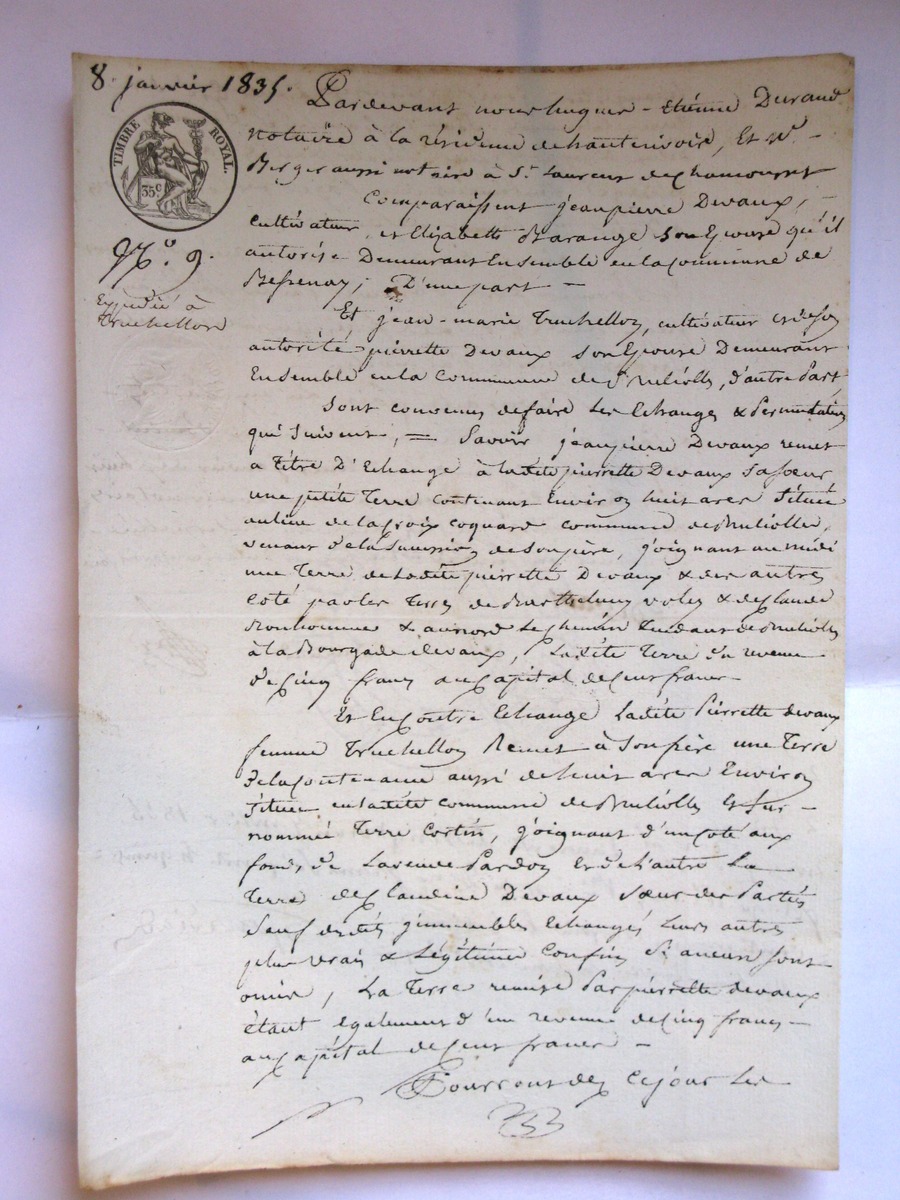 8. janvier 1835.
TIMBRE ROYAL.
35c
N.o 9.
Expédié à
Truchellon
Pardevant nous hugues-Etiénne Durand
notaire à la résidence de hauterivoire, Et Me
Berger aussi notaire à St. Laurent de Chamousset
Comparaissent jeanpierre Devaux,
cultivateur, et Elizabeth Barange son Epouse qu'il
autorise Demeurant Ensemble en la commune de
Bessenay, D'une part
Et jean-marie Truchellon, cultivateur et de son
autorité pierrette Devaux son Epouse Demeurant
Ensemble en la Commune de Brulioles, d'autre Part,
Sont convenus de faire Les Echanges & Permutations
qui Suivent, = Savoir jeanpierre Devaux remet
a titre D'Echange à ladite pierrette Devaux Sa soeur
une petite Terre contenant Environ huit ares Située
au lieu de la croix coquard commune de Brulioles,
venant de la Succession de son père, joignant au midi
une Terre de Ladite pierrette Devaux & des autres
coté par les Terres de Barthelemy voles & de Claude
Bonhomme & au nord Le chemin Tendant de Brulioles
à la Bourgade devaux, Ladite Terre du revenu
de Cinq francs au Capital de Cent francs
Et En Contre Echange Ladite Pierrette devaux
femme Truchellon Remet à Son frère une Terre
de la Contenance aussi de huit ares Environ
Située en ladite commune de Brulioles Et Sur-
nommée Terre Cortin, joignant d'un coté aux
fonds de La veuve Pardon Et de L'autre La
Terre de Claudine Devaux soeur des Parties
Sauf desdits immeubles Echangés Leurs autres
plus vrais & Légitimes Confins Si aucuns Sont
omis, La Terre remise Par pierrette devaux
étant également d'un revenu de Cinq francs
au Capital de Cent francs
Pourront dès ce jour Les